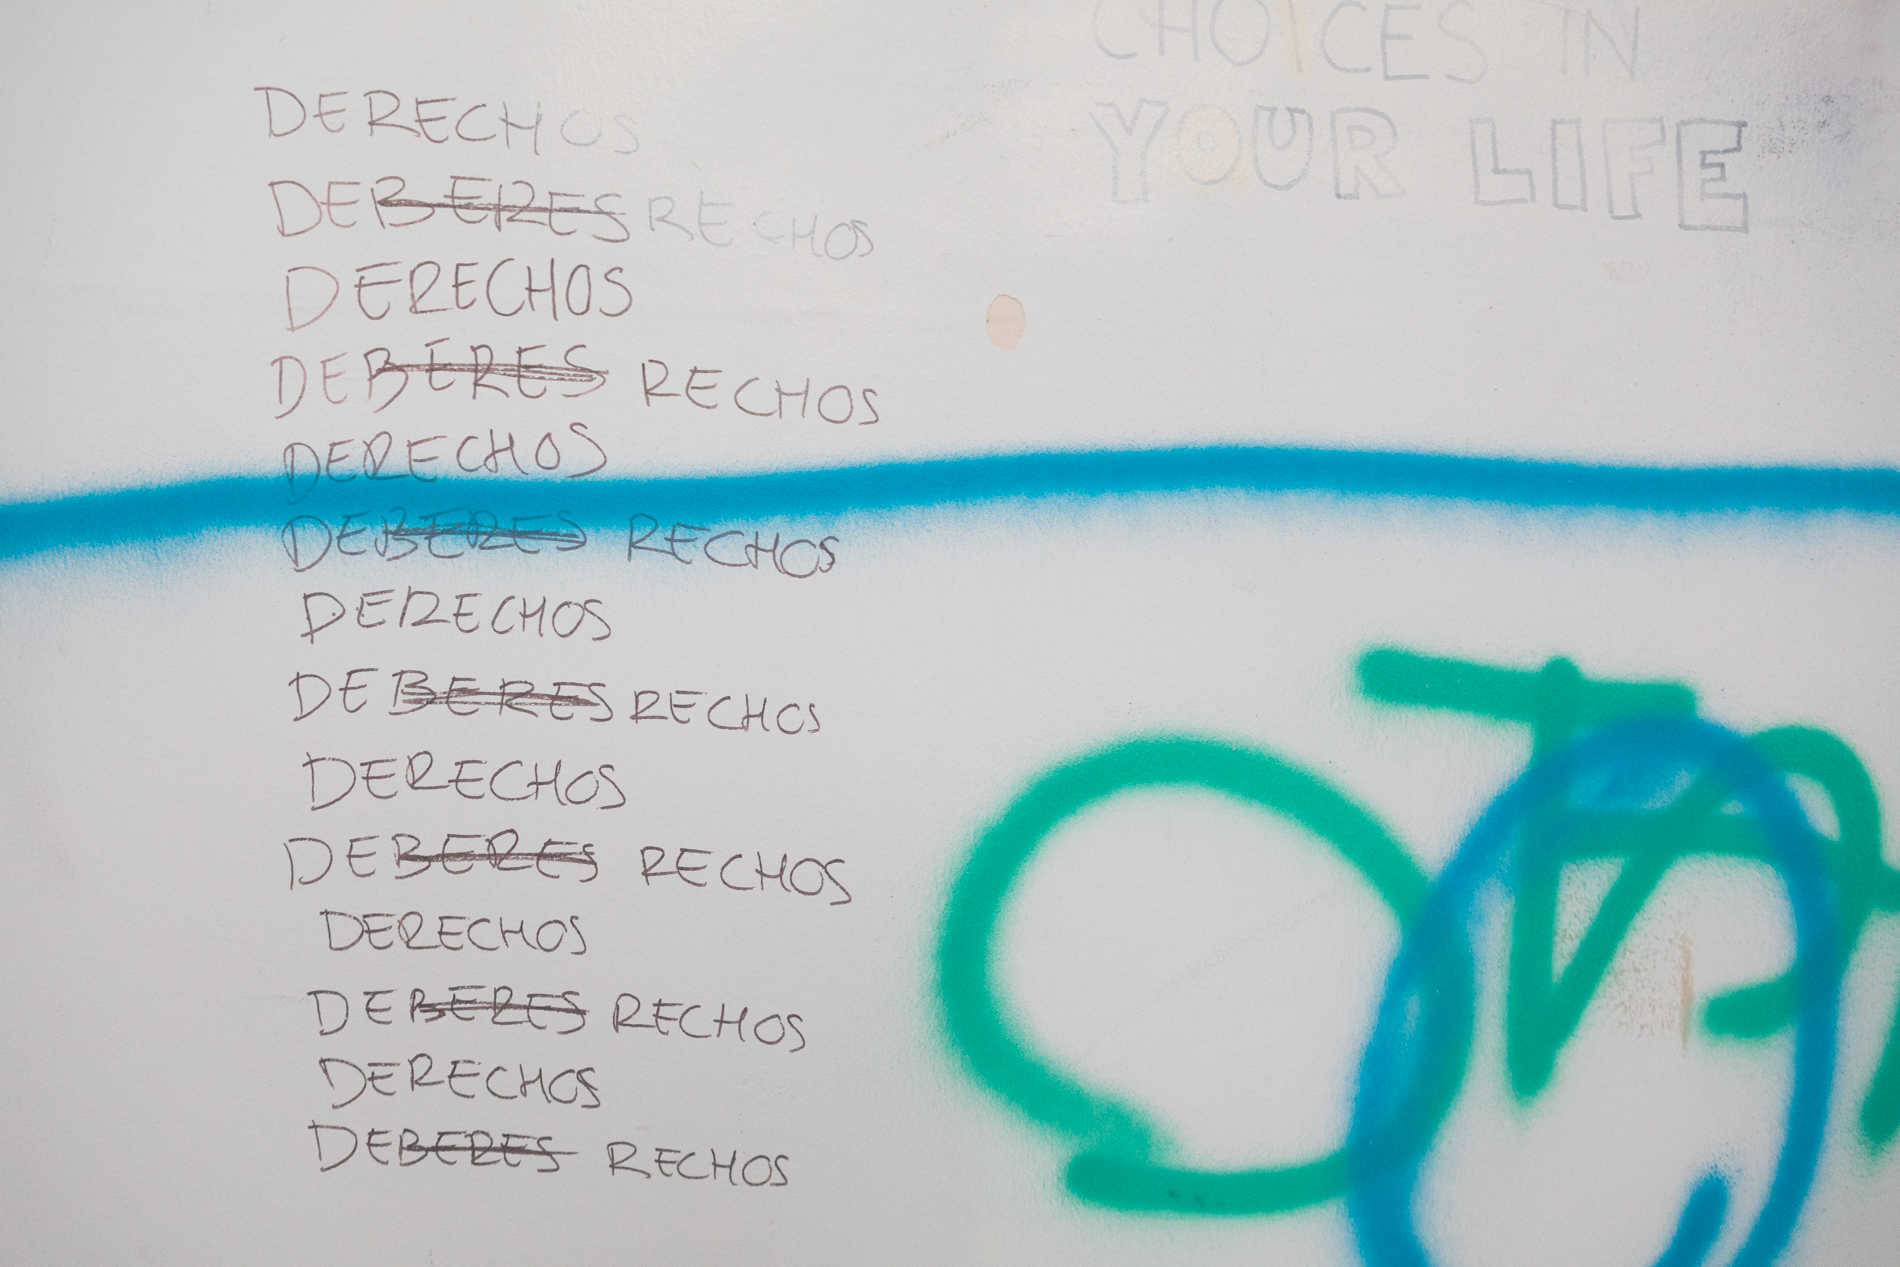 CHOICES IN
YOUR LIFE
DERECHOS
DEBERES RECHOS
DERECHOS
DEBERES RECHOS
DERECHOS
DEBERES RECHOS
DERECHOS
DEBERES RECHOS
DERECHOS
DEBERES RECHOS
DERECHOS
DEBERES RECHOS
DERECHOS
DEBERES RECHOS